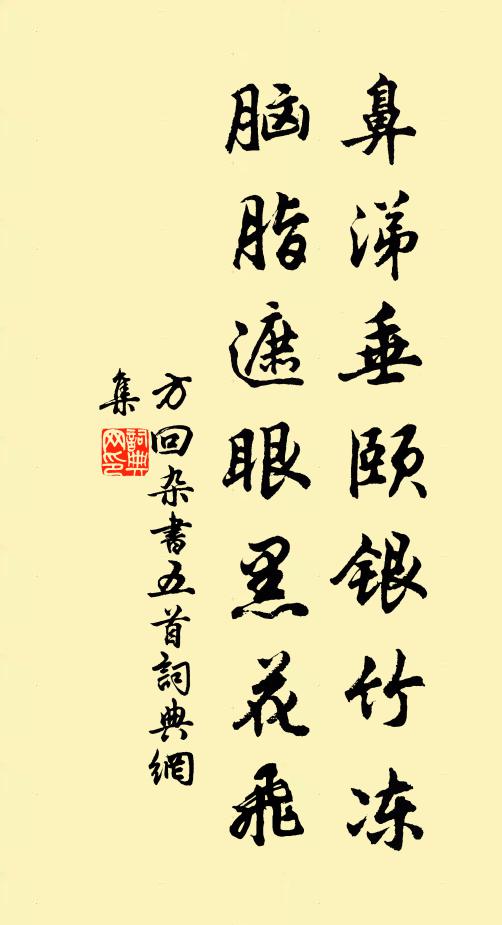 鼻涕垂颐银竹冻
脑脂遮眼黑花飛
方回杂書五首詞典網
集
詞典网印